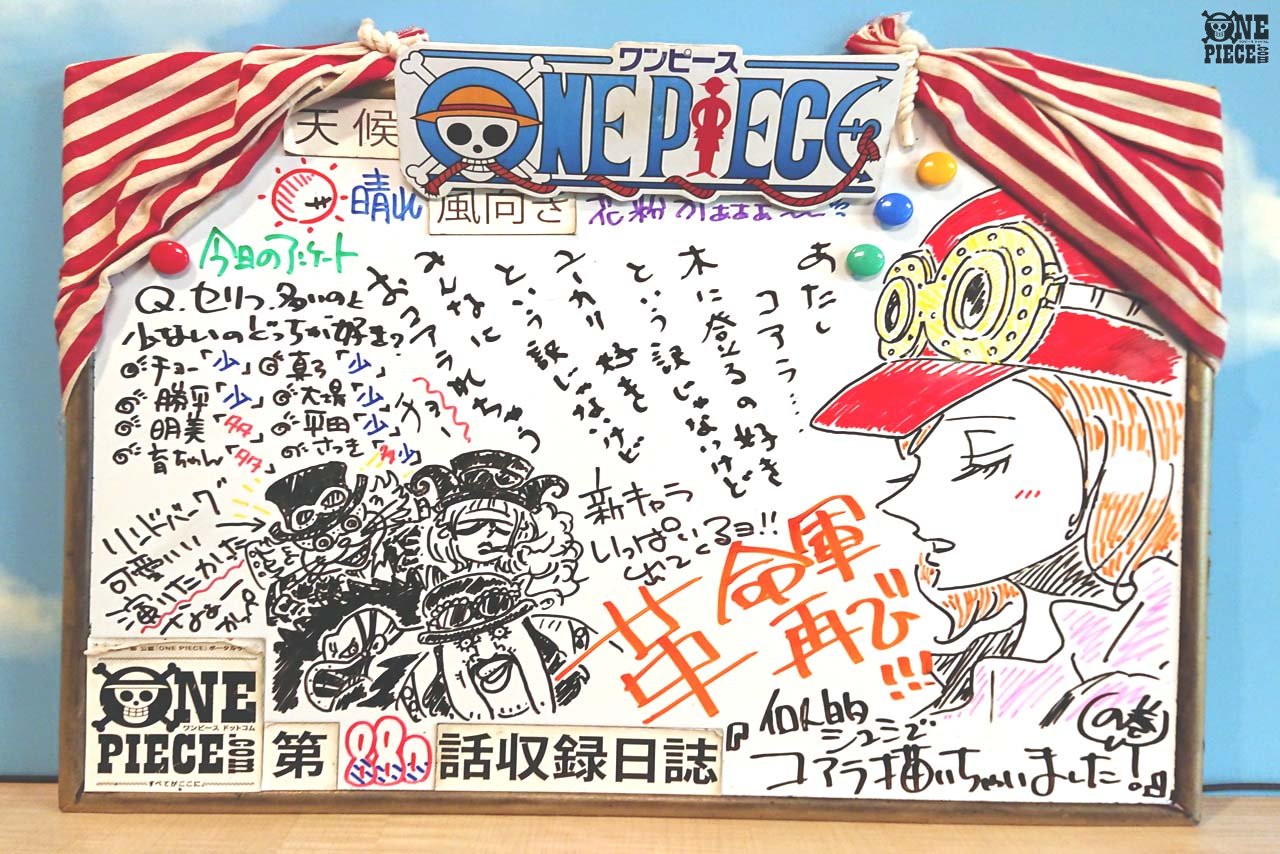 ONE PIECE.com
ワンピース
ONE PIECE
天候
晴れ
風向き
花粉がぁぁぁ〜〜
今日のアンケート
Q.セリフ、多いのと
少ないのどっちが好き?
チョー「少」
真弓「少」
勝平「少」
大場「少」
明美「多」
平田「少」
育ちゃん「多」
さつき「多少」
あたし
コアラ…
木に登るの好き
という訳じゃないけど
ユーカリ好きと
いう訳じゃないけど
みんなに
おコアラれちゃう
チョー
リンドバーグ
可愛いい
演りたかった
なー
新キャラ
いっぱい
出てくるヨ!!
革命軍
再び!!!
ONE PIECE.com
ワンピース ドットコム
すべてがここに
第880話収録日誌
『似的
コアラ描いちゃいました!』
の巻